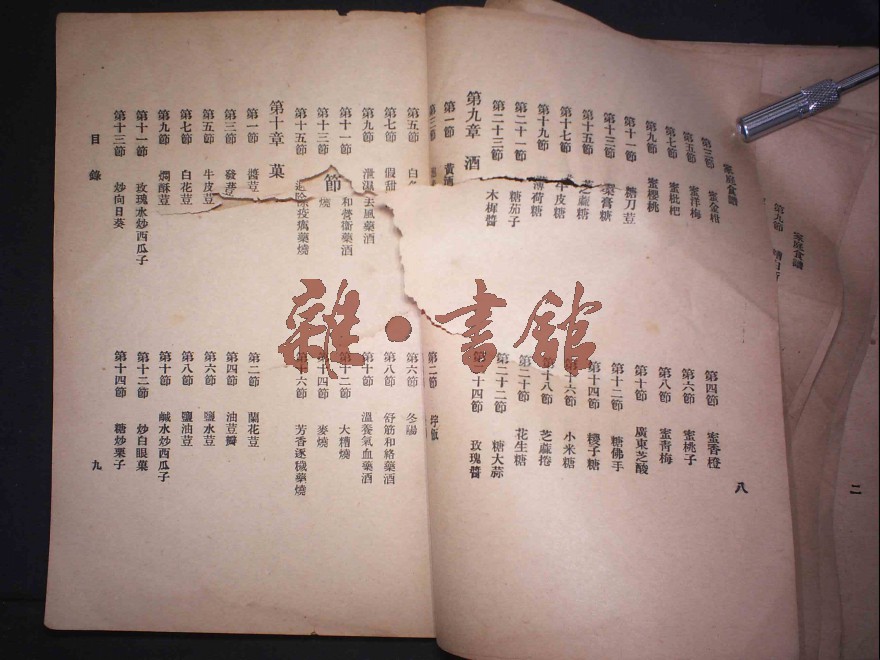 家庭食譜
第三節 蜜金柑
第四節 蜜香橙
第五節 蜜洋梅
第六節 蜜桃子
第七節 蜜枇杷
第八節 蜜青梅
第九節 蜜櫻桃
第十節 廣東芝酸
第十一節 糖刀荳
第十二節 糖佛手
第十三節 膏糖
第十四節 糉子糖
第十五節 芝蔴糖
第十六節 小米糖
第十七節 牛皮糖
第十八節 芝蔴捲
第十九節 薄荷糖
第二十節 花生糖
第二十一節 糖茄子
第二十二節 糖大蒜
第二十三節 木樨醬
第二十四節 玫瑰醬
八
第九章 酒
第一節 黃酒
第二節
第三節
第五節 白
第六節 冬
第七節 假甜
第八節 舒筋和絡藥酒
第九節 去風藥酒
第十節 溫養氣血藥酒
第十一節 和營衞藥酒
第十二節 大糟燒
第十三節 燒
第十四節 麥燒
第十五節 疫癘藥燒
第十六節 芳香逐穢藥燒
節
第十章 菓
第一節 醬荳
第二節 蘭花荳
第三節 發芽荳
第四節 油荳瓣
第五節 牛皮荳
第六節 鹽水荳
第七節 白花荳
第八節 鹽油荳
第九節 燜酥荳
第十節 鹹水炒西瓜子
第十一節 玫瑰水炒西瓜子
第十二節 炒白眼菓
第十三節 炒向日葵
第十四節 糖炒栗子
目錄
九
家庭食譜
第九節
二
雜·書館